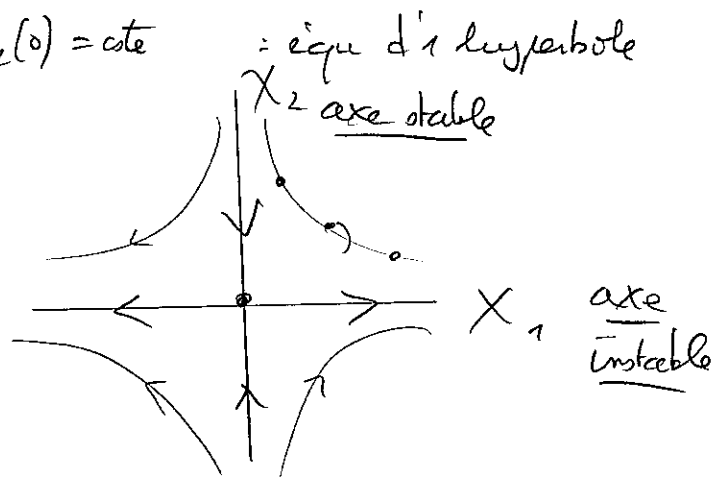 ₂(0) = cste : équ d'1 hyperbole
X₂ axe stable
X₁ axe
instable